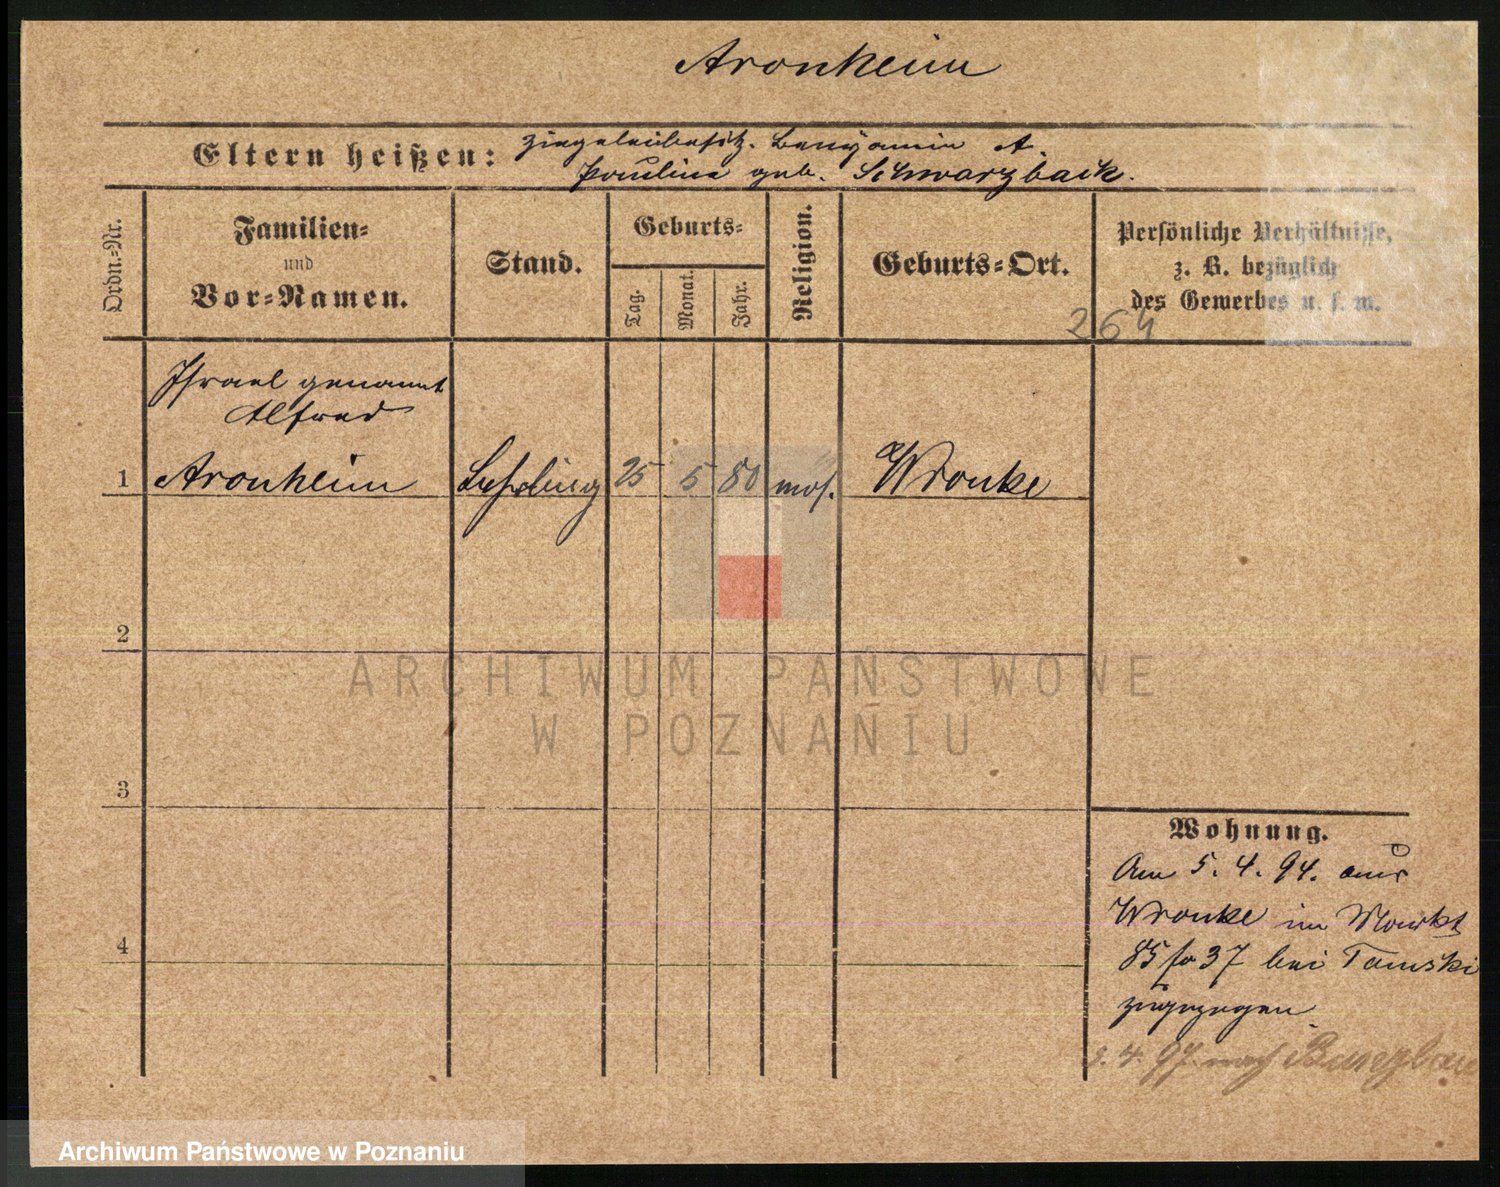 Aronheim
Eltern heißen: Ziegeleibesitz. Benjamin A.
Pauline geb. Schwarzback.
Ordn.-Nr.
Familien-
und
Vor-Namen.
Stand.
Geburts-
Tag.
Monat.
Jahr.
Religion.
Geburts-Ort.
Persönliche Verhältnisse,
z. B. bezüglich
des Gewerbes u. s. w.
264
Israel genannt
Alfred
1 Aronheim Lehrling 25 5 80 mos. Wronke
2
ARCHIWUM PAŃSTWOWE
W POZNANIU
3
Wohnung.
Am 5. 4. 94. aus
Wronke im Markt
85 37 bei Tomski
zugezogen
4
5. 4. 97. nach
Archiwum Państwowe w Poznaniu